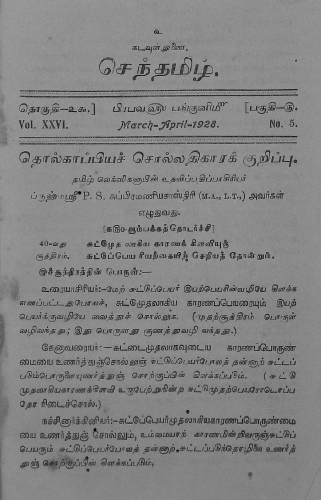 ௨
கடவுள் துணை.
செந்தமிழ்.
தொகுதி—௨௬.] பிரபவ௵ பங்குனி௴ [பகுதி—௫.
Vol. XXVI. March-April-1928. No. 5.
தொல்காப்பியச் சொல்லதிகாரக் குறிப்பு.
தமிழ் லெக்ஸிகனுபின் உதவிப்பதிப்பாசிரியர்
P. S. சுப்பிரமணியசாஸ்திரி (M.A., L.T.,) அவர்கள்
எழுதுவது.
பக்கத்தொடர்ச்சி]
40-வது சுட்டுமுத லாகிய காரணக் கிளவியுஞ்
சூத்திரம். சுட்டுப்பெய ரியற்கையிற் செறியத் தோன்றும்.
இச்சூத்திரத்தின் பொருள்:—
உரையாசிரியர்:—மேற் சுட்டுப்பெயர் இயற்பெயரின்வழியே கிளக்க
எனப்பட்டதுபோலச், சுட்டுமுதலாகிய காரணப்பெயரையும் இயற்
பெயர்க்குவழியே வைத்துச் சொல்லுக. (முதற்சூத்திரம் பொருள்
வழிவந்தது; இது பொருளது குணத்துவழி வந்தது.)
சேனாவரையர்:—சுட்டைமுதலாகவுடைய காரணப்பொருண்
மையை உணர்த்துஞ்சொல்லும் சுட்டுப்பெயர்போலத் தன்னாற் சுட்டப்
படும்பொருளையுணர்த்துஞ் சொற்குப்பின் கிளக்கப்படும். (சுட்டு
முதலாகியகாரணக்கிளவி உருபேற்றுநின்ற சுட்டுமுதற்பெயரோடொப்ப
தோ ரிடைச்சொல்.)
நச்சினார்க்கினியர்:—சுட்டுப்பெயர்முதலாகியகாரணப்பொருண்மை
யை உணர்த்துஞ் சொல்லும், உம்மையாற் காரணமின்றிவருஞ்சுட்டுப்
பெயரும் சுட்டுப்பெயர்போலத் தன்னாற், சுட்டப்படும்தொழிலை உணர்த்
துஞ் சொற்குப்பின் கிளக்கப்படும்.